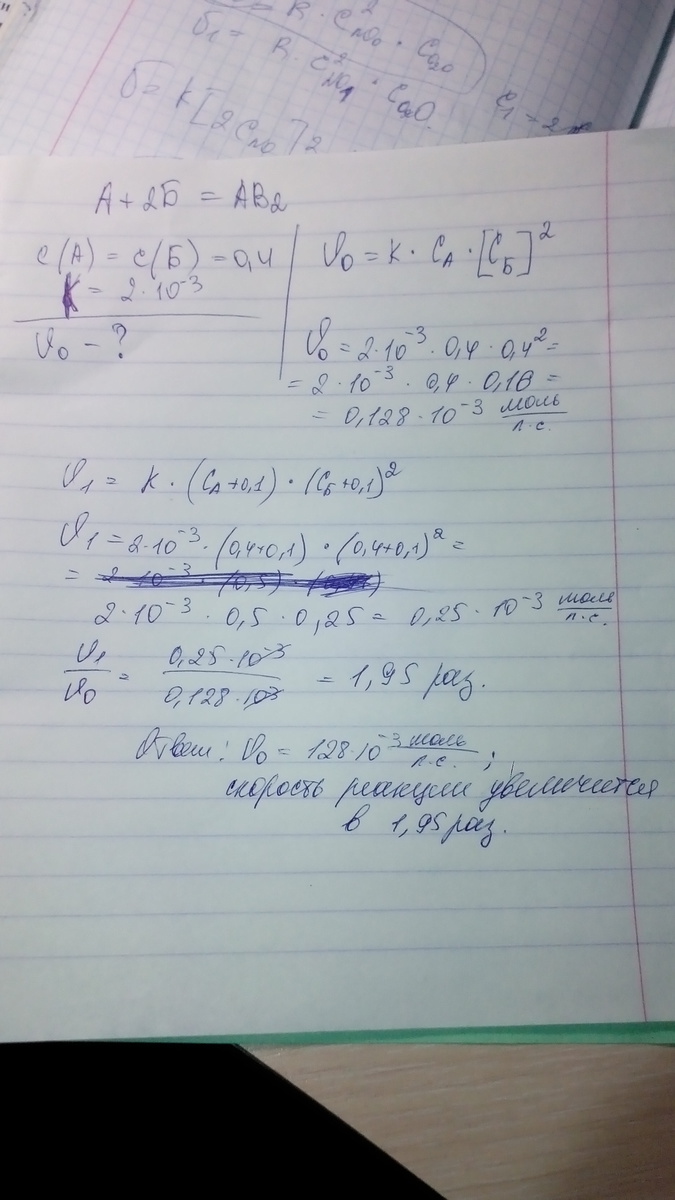 A + 2Б = AB₂
c(A) = c(Б) = 0,4
K = 2·10⁻³
V₀ - ?
V₀ = K · C_A · [C_Б]²
V₀ = 2·10⁻³ · 0,4 · 0,4² =
= 2·10⁻³ · 0,4 · 0,16 =
= 0,128·10⁻³ моль/л·с.
V₁ = K · (C_A+0,1) · (C_Б+0,1)²
V₁ = 2·10⁻³ · (0,4+0,1) · (0,4+0,1)² =
=
2·10⁻³ · 0,5 · 0,25 = 0,25·10⁻³ моль/л·с.
V₁/V₀ = 0,25·10⁻³/0,128·10⁻³ = 1,95 раз.
Ответ: V₀ = 128·10⁻³ моль/л·с. ;
скорость реакции увеличится
в 1,95 раз.